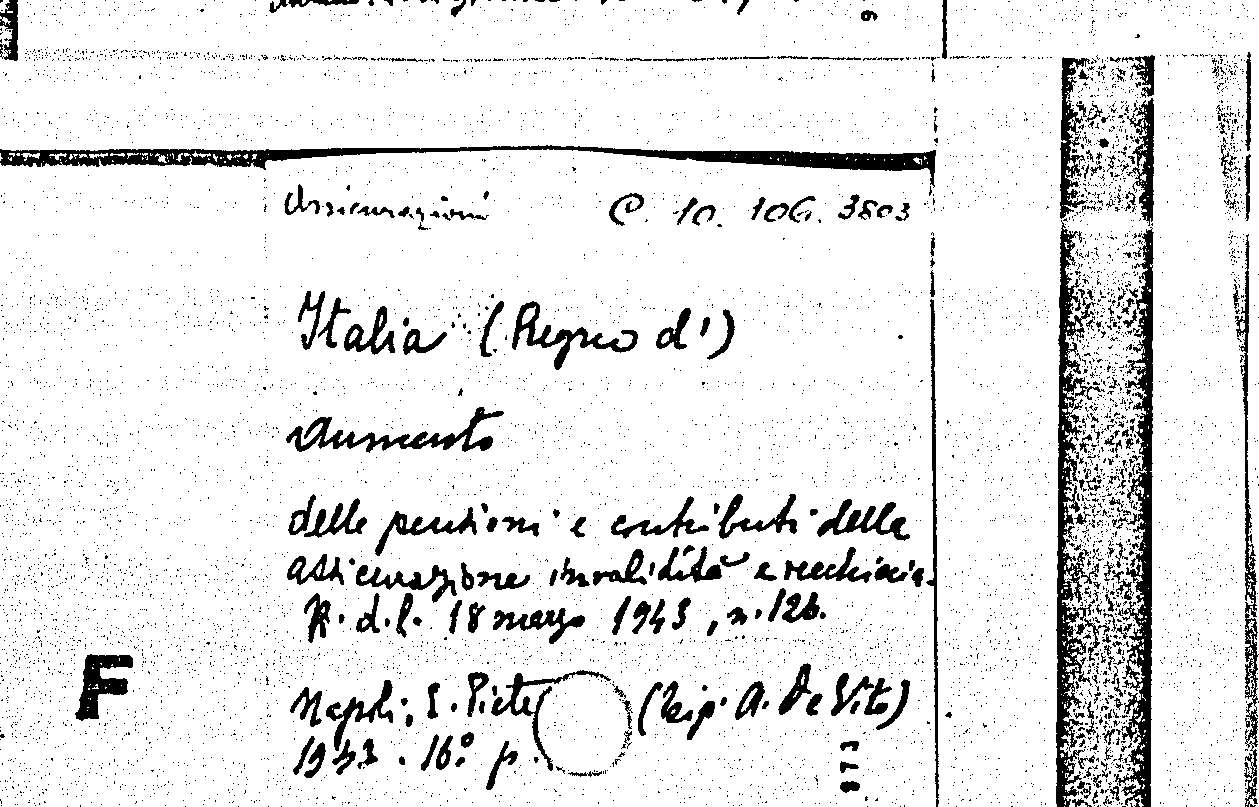 Assicurazioni C. 10. 106. 3803
Italia (Regno d')
Aumento
delle pensioni e contributi della
assicurazione invalidità e vecchiaia.
R. d. l. 18 marzo 1943, n. 126.
F
Napoli, (tip. A. De Vito)
1943. 16° p.
873